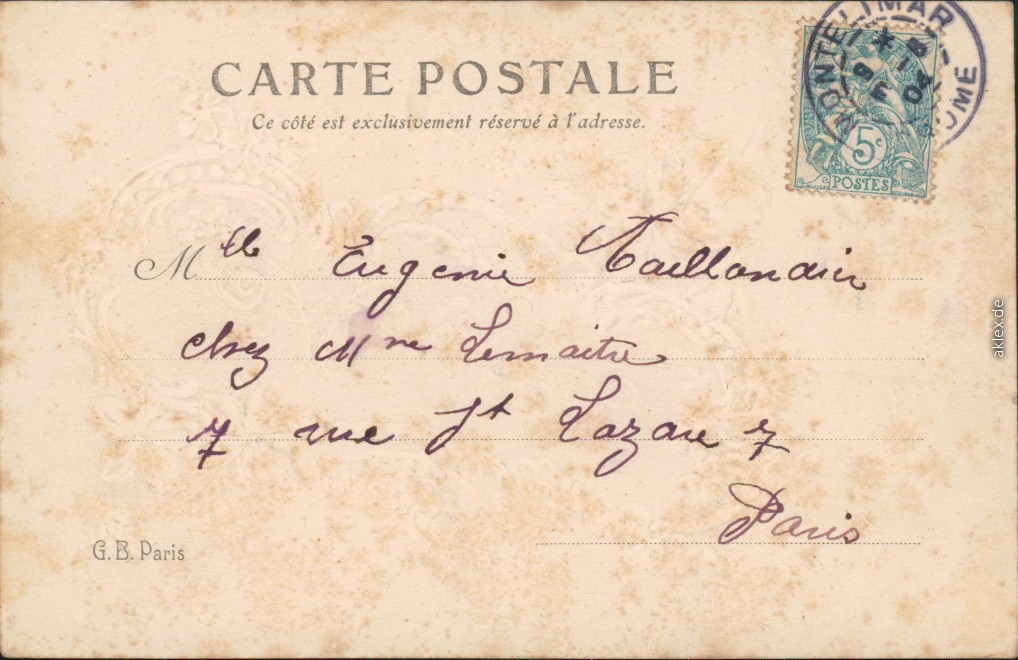 CARTE POSTALE
Ce côté est exclusivement réservé à l'adresse.
MONTELIMAR
DROME
5c
POSTES
Mlle Eugenie Taillandier
chez Mme Lemaitre
7 rue St Lazare 7
Paris
G.B. Paris
aklex.de